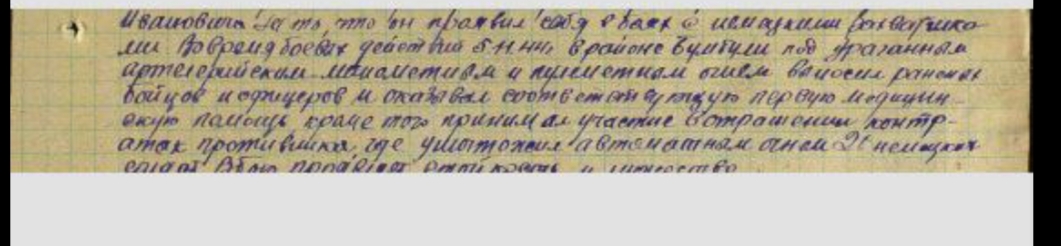 Ивановича За то, что он проявил себя в боях с немецкими захватчика-
ми Вовремя боевых действий 5.11.44г. в районе Бумбули под ураганным
артелерийским минометным и пулеметным огнем выносил раненых
бойцов и офицеров и оказывал соответствующую первую медицин-
скую помощь кроме того принимал участие в отражении контр-
атак противника, где уничтожил автоматным огнем 2 немецких
солдат В бою проявляет стойкость и мужество